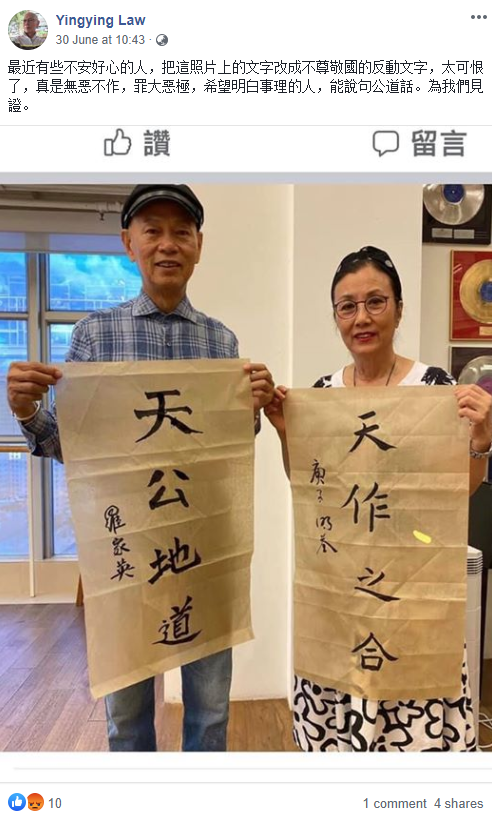 Yingying Law
30 June at 10:43
最近有些不安好心的人，把這照片上的文字改成不尊敬國的反動文字，太可恨
了，真是無惡不作，罪大惡極，希望明白事理的人，能說句公道話。為我們見
證。
讚
留言
天公地道
羅家英
天作之合
庚子
10
1 comment 4 shares